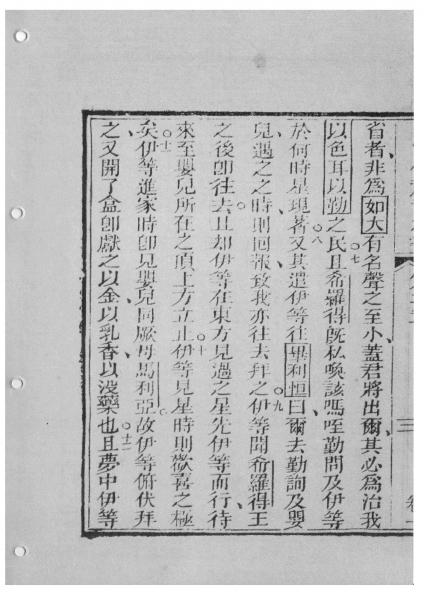 省者非為如大有名聲之至小蓋君將出爾其必為治我
以色耳以勒之民○七且希羅得既私喚該嗎咥勤問及伊等
於何時星現著○八又其遣伊等往畢利恒曰爾去勤詢及嬰
兒遇之之時則回報致我亦往去拜之○九伊等聞希羅得王
之後即往去且却伊等在東方見過之星先伊等而行待
來至嬰兒所在之頂上方立止○十伊等見星時則歡喜之極
矣○十一伊等進家時即見嬰兒同厥母馬利亞故伊等俯伏拜
之又開了盒即獻之以金以乳香以沒藥也○十二且夢中伊等
三